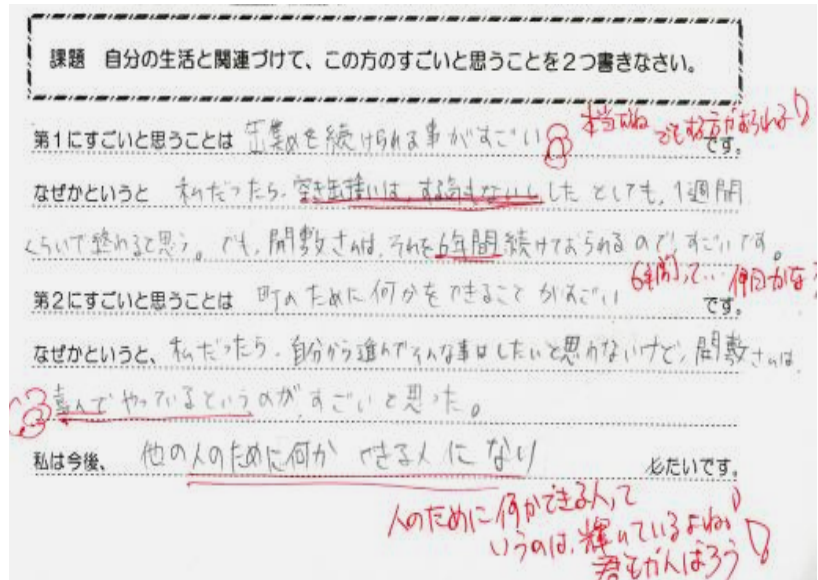 課題 自分の生活と関連づけて、この方のすごいと思うことを2つ書きなさい。
本当だね でもする方がおられる
第1にすごいと思うことは 缶集めを続けられる事がすごい です。
なぜかというと 私だったら、空き缶拾いは、する気もないし したとしても、1週間
くらいで終わると思う。でも、開敷さんは、それを6年間続けておられるので、すごいです。
6年間って… 何回かな?
第2にすごいと思うことは 町のために何かをできること がすごい です。
なぜかというと、私だったら、自分から進んでそんな事はしたいと思わないけど、開敷さんは
喜んでやっているというのが、すごいと思った。
私は今後、 他の人のために何か できる人に なり たいです。
人のために何かできる人って
いうのは、輝いているよね。
君もがんばろう